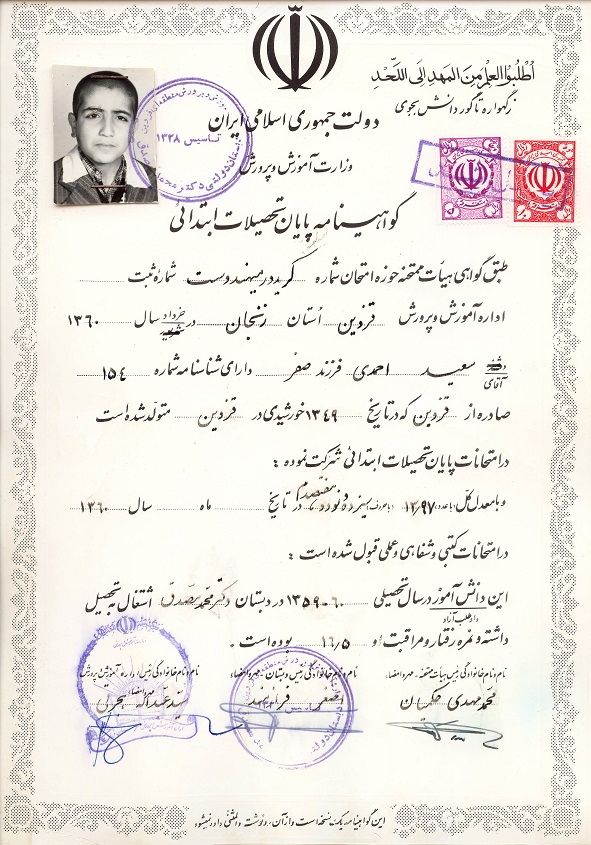 اُطلُبُوا العِلمَ مِنَ المَهدِ اِلَی اللَّحَد
زگهواره تا گور دانش بجوی
دولت جمهوری اسلامی ایران
وزارت آموزش و پرورش
تاسیس ۱۳۲۸
گواهینامه پایان تحصیلات ابتدائی
طبق گواهی هیأت ممتحنه حوزه امتحان شماره گرید در میهندوست شماره ثبت
اداره آموزش و پرورش قزوین استان زنجان در خرداد شهریور سال ۱۳۶۰
دوشیزه آقای سعید احمدی فرزند صفر دارای شناسنامه شماره ۱۵۴
صادره از قزوین که در تاریخ ۱۳۴۹ خورشیدی در قزوین متولد شده است
در امتحانات پایان تحصیلات ابتدائی شرکت نموده :
و با معدل کل (با عدد) ۱۳/۹۷ (با حروف) سیزده و نود و هفت صدم در تاریخ ماه سال ۱۳۶۰
در امتحانات کتبی و شفاهی و عملی قبول شده است :
این دانش آموز داوطلب آزاد در سال تحصیلی ۶۰-۱۳۵۹ در دبستان دکتر محمد مصدق اشتغال به تحصیل
داشته و نمره رفتار و مراقبت او ۱۶/۵ بوده است .
نام و نام خانوادگی رئیس هیأت ممتحنه - مهر و امضاء
محمد مهدی حکمیان
نام و نام خانوادگی رئیس دبستان - مهر و امضاء
اصغر
نام و نام خانوادگی رئیس اداره آموزش و پرورش
مهر و امضاء
سید عبداله
این گواهینامه یک نسخه است و از آن رونوشت و المثنی داده نمیشود